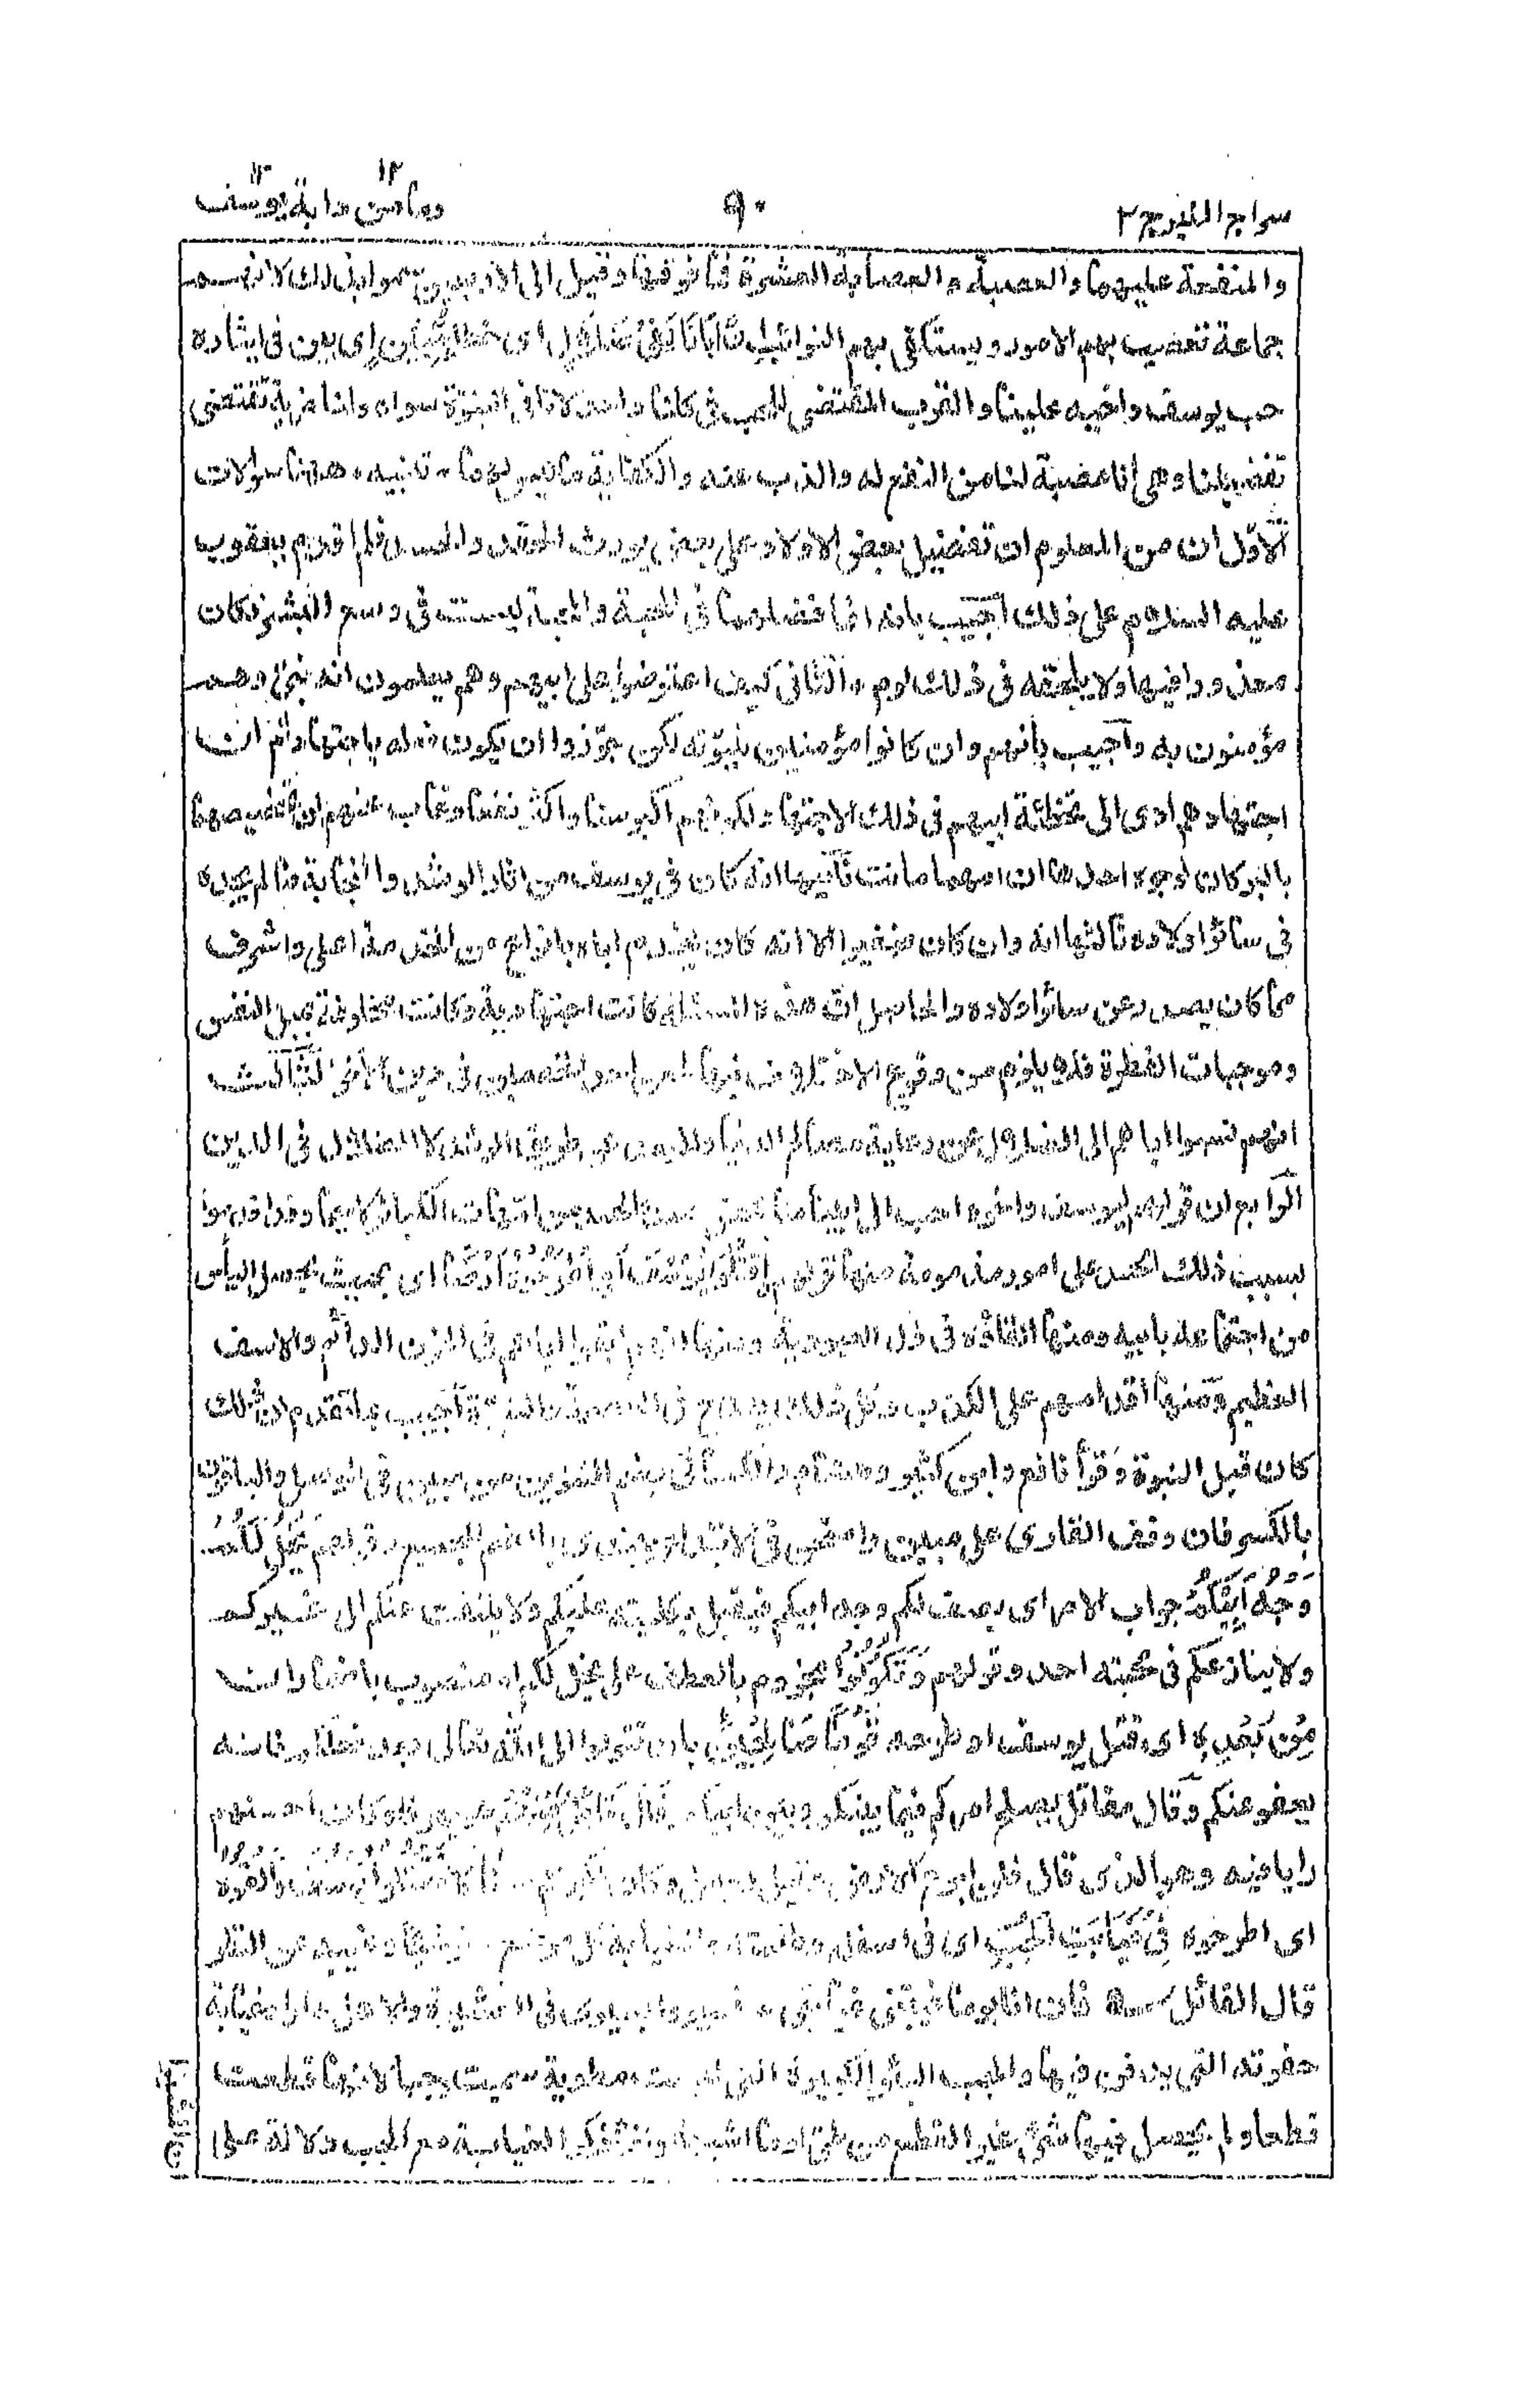 سراج المنير ج ٢
٩٠
وما من دابة يوسف
١٢ ١٢
والمنفعة عليهما والعصبة والعصابة العشرة فما فوقها وقيل الى الاربعين سموا بذلك لانهم
جماعة تعصب بهم الامور ويستكفى بهم النوائب اِنَّ اَبَانَا لَفِیْ ضَلٰلٍ اى خطا مُّبِیْنٍ اى بين فى ايثاره
حب يوسف واخيه علينا والقرب المقتضى للحب فى كلنا واحد لانا فى البنوة سواء ولنا مزية تقتضى
تفضيلنا وهى انا عصبة لنا من النفع له والذب عنه والكفاية ما ليس لهما ۔ تنبيه ۔ ههنا سؤلات
الاول ان من المعلوم ان تفضيل بعض الاولاد على بعض يورث الحقد والحسد فلم اقدم يعقوب
عليه السلام على ذلك اجيب بانه انما فضلهما فى المحبة والمحبة ليست فى وسع البشر فكان
معذورا فيها ولا يلحقه فى ذلك لوم والثانى كيف اعترضوا على ابيهم وهم يعلمون انه نبى وهم
مؤمنون به واجيب بانهم وان كانوا مؤمنين بنبوته لكن جوزوا ان يكون فعله باجتهاد ثم ان
اجتهادهم ادى الى تخطئة ابيهم فى ذلك الاجتهاد لكونهم اكبر سنا واكثر نفعا وغاب عنهم ان تخصيصهما
بالبر كان لوجوه احدها ان امهما ماتت ثانيها انه كان فى يوسف من اثار الرشد والنجابة ما لم يجده
فى سائر اولاده ثالثها انه وان كان صغيرا الا انه كان يخدم اباه بانواع من الخدمة اعلى واشرف
مما كان يصدر عن سائر اولاده والحاصل ان هذه المسئلة كانت اجتهادية وكانت مخلوطة بميل النفس
وموجبات الفطرة فلا يلزم من وقوع الاختلاف فيها طعن احد الخصمين فى دين الاخر الثالث
انهم نسبوا اباهم الى الضلال عن رعاية مصالح الدنيا والبعد عن طريق الرشد لا الضلال فى الدين
الرابع ان قولهم ليوسف واخوه احب الى ابينا منا محض حسد والحسد من امهات الكبائر لا سيما وقد اقدموا
بسبب ذلك الحسد على امور مذمومة منها قولهم اقْتُلُوْا يُوْسُفَ اَوِ اطْرَحُوْهُ اَرْضًا اى بحيث يحصل اليأس
من اجتماعه بابيه ومنها القاؤه فى ذل العبودية ومنها انهم ابقوا اباهم فى الحزن الدائم والاسف
العظيم ومنها اقدامهم على الكذب وكل ذلك يقدح فى العصمة والنبوة اجيب بما تقدم ان ذلك
كان قبل النبوة وقرأ نافع وابن كثير وهشام والكسائى بضم التنوين من مبين فى الوصل والباقون
بالكسر فان وقف القارى على مبين وامتحن فى الابتداء يبتدى بالضم للجميع وقولهم يَخْلُ لَكُمْ
وَجْهُ اَبِيْكُمْ جواب الامر اى يصف لكم وجه ابيكم فيقبل بكليته عليكم ولا يلتفت عنكم الى غيركم
ولا ينازعكم فى محبته احد وقولهم وَتَكُوْنُوْا مجزوم بالعطف على يخل لكم او منصوب باضمار ان
مِنْ بَعْدِهٖ اى قتل يوسف او طرحه قَوْمًا صَالِحِيْنَ بان تتوبوا الى الله تعالى بعد فعلكم فانه
يعفو عنكم وقال مقاتل يصلح امركم فيما بينكم وبين ابيكم قَالَ قَائِلٌ مِّنْهُمْ هو يهوذا وكان احسنهم
رايا فيه وهو الذى قال فلن ابرح الارض لَا تَقْتُلُوْا يُوْسُفَ وَاَلْقُوْهُ
اى اطرحوه فِيْ غَيَابَتِ الْجُبِّ اى فى اسفله وظلمته والغيابة كل موضع ستر شيئا وغيبه عن النظر
قال القائل فان انا يوما غيبتنى غيابتى ۔ فسيروا بسيرى فى العشيرة والاهل ۔ اراد غيابة
حفرته التى يدفن فيها والجب البئر الكبيرة التى ليست مطوية سميت جبا لانها قطعت
قطعا ولم يحصل فيها شئ غير القطع من طى او ما اشبهه وانما ذكر الغيابة مع الجب دلالة على